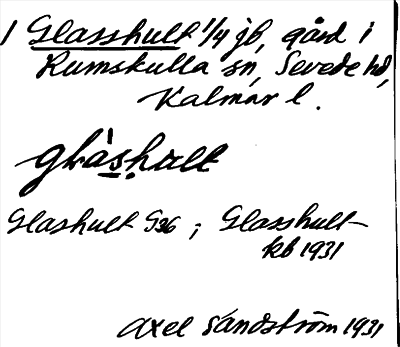 1 Glasshult 1/4 jb, gård i
Rumskulla sn, Sevede hd,
Kalmar l.
glàs̲ḥult
Glashult G36; Glasshult
kb 1931
Axel Sandström 1931